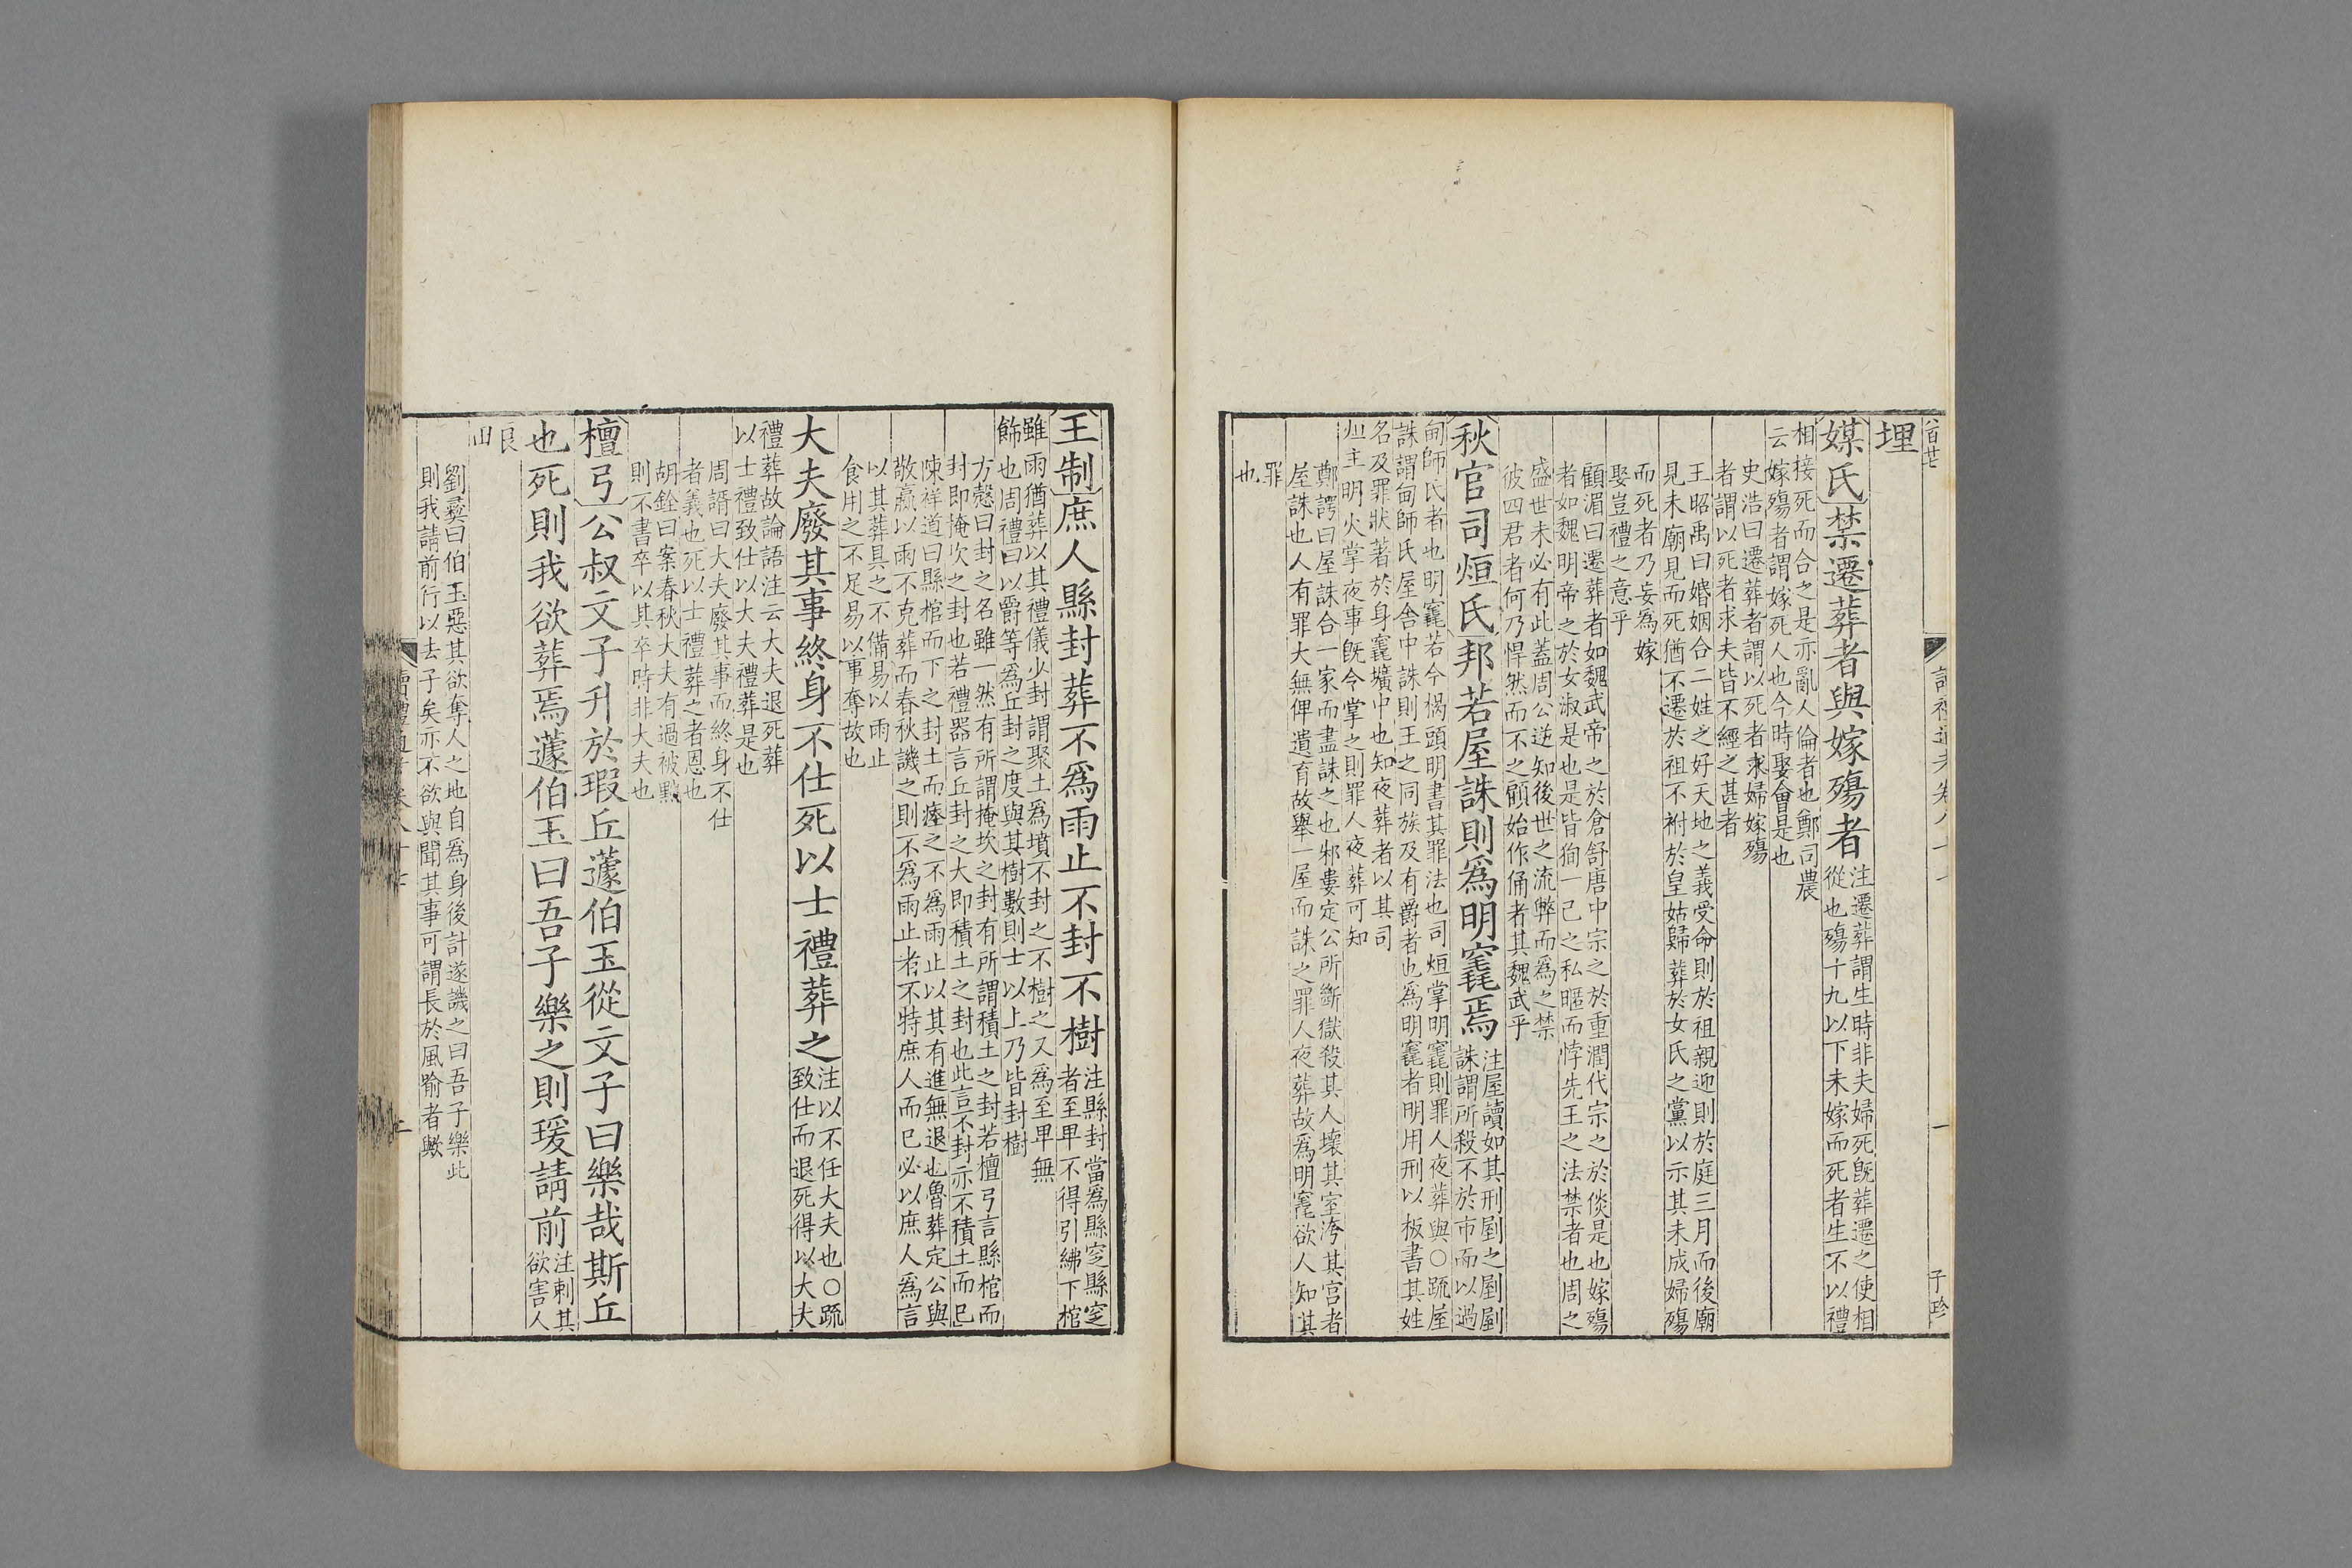 埋
媒氏禁遷葬者與嫁殤者
注遷葬謂生時非夫婦死旣葬遷之使相
從也殤十九以下未嫁而死者生不以禮
相接死而合之是亦亂人倫者也鄭司農
云嫁殤者謂嫁死人也今時娶會是也
史浩曰遷葬者謂以死者求婦嫁殤
者謂以死者求夫皆不經之甚者
王昭禹曰婚姻合二姓之好天地之義受命則於祖親迎則於庭三月而後廟
見未廟見而死猶不遷於祖不祔於皇姑歸葬於女氏之黨以示其未成婦殤
而死者乃妄爲嫁
娶豈禮之意乎
顧湄曰遷葬者如魏武帝之於倉舒唐中宗之於重潤代宗之於倓是也嫁殤
者如魏明帝之於女淑是也是皆狥一己之私暱而悖先王之法禁者也周之
盛世未必有此蓋周公逆知後世之流弊而爲之禁
彼四君者何乃悍然而不之顧始作俑者其魏武乎
秋官司烜氏邦若屋誅則爲明竁焉
注屋讀如其刑剭之剭剭
誅謂所殺不於市而以過
甸師氏者也明竁若今楬頭明書其罪法也司烜掌明竁則罪人夜葬與○疏屋
誅謂甸師氏屋舎中誅則王之同族及有爵者也爲明竁者明用刑以板書其姓
名及罪狀著於身竁壙中也知夜葬者以其司
烜主明火掌夜事旣令掌之則罪人夜葬可知
鄭諤曰屋誅合一家而盡誅之也邾婁定公所斷獄殺其人壞其室洿其宮者
屋誅也人有罪大無俾遺育故舉一屋而誅之罪人夜葬故爲明竁欲人知其
罪
也
子珍
王制庶人縣封葬不爲雨止不封不樹
注縣封當爲縣窆縣窆
者至卑不得引紼下棺
雖雨猶葬以其禮儀少封謂聚土爲墳不封之不樹之又爲至卑無
飾也周禮曰以爵等爲丘封之度與其樹數則士以上乃皆封樹
方慤曰封之名雖一然有所謂掩坎之封有所謂積土之封若檀弓言縣棺而
封卽掩坎之封也若禮器言丘封之大卽積土之封也此言不封亦不積土而已
陳祥道曰縣棺而下之封土而瘞之不爲雨止以其有進無退也魯葬定公與
敬嬴以雨不克葬而春秋譏之則不爲雨止者不特庶人而已必以庶人爲言
以其葬具之不備易以雨止
食用之不足易以事奪故也
大夫廢其事終身不仕死以士禮葬之
注以不任大夫也○疏
致仕而退死得以大夫
禮葬故論語注云大夫退死葬
以士禮致仕以大夫禮葬是也
周諝曰大夫廢其事而終身不仕
者義也死以士禮葬之者恩也
胡銓曰案春秋大夫有過被黜
則不書卒以其卒時非大夫也
檀弓公叔文子升於瑕丘蘧伯玉從文子曰樂哉斯丘
也死則我欲葬焉蘧伯玉曰吾子樂之則瑗請前
注刺其
欲害人
良
田
劉彝曰伯玉惡其欲奪人之地自爲身後計遂譏之曰吾子樂此
則我請前行以去子矣亦不欲與聞其事可謂長於風喻者歟